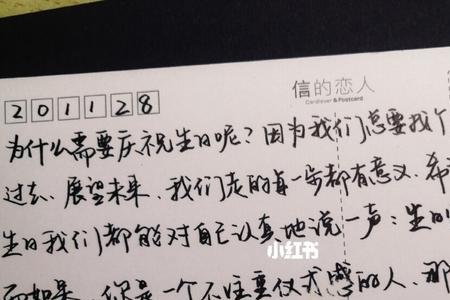 信的恋人
Cardlover & Postcard
201128
为什么需要庆祝生日呢？因为我们总要找个
过去、展望未来，我们走的每一步都有意义，希
生的我们都能对自己认真地说一声：生日
小红书
而如果，你是一个不注重仪式感的人，那